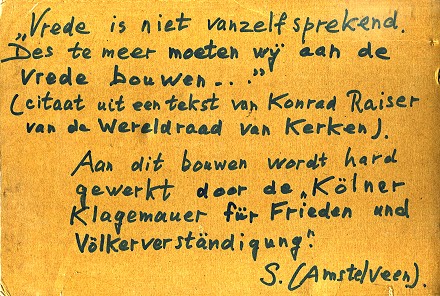 „Vrede is niet vanzelfsprekend.
Des te meer moeten wij aan de
vrede bouwen..."
(citaat uit een tekst van Konrad Raiser
van de Wereldraad van Kerken).
Aan dit bouwen wordt hard
gewerkt door de „Kölner
Klagemauer für Frieden und
Völkerverständigung".
S. (Amstelveen).